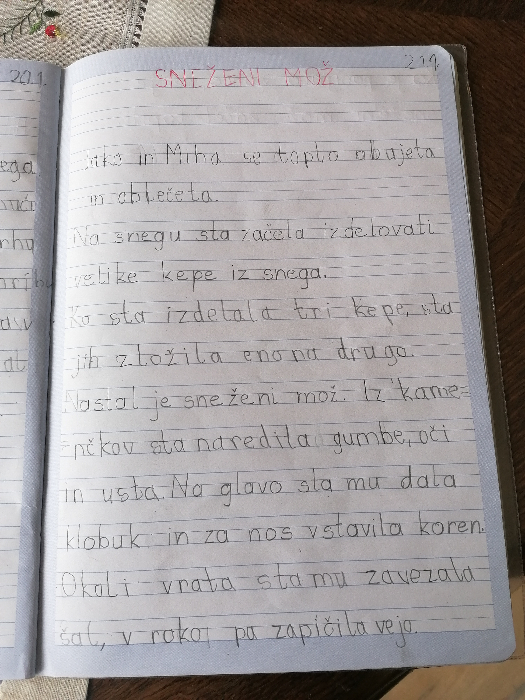 20.1.
ega
21.1.
SNEŽENI MOŽ
Jaka in Miha se toplo obujeta
in oblečeta.
Na snegu sta začela izdelovati
velike kepe iz snega.
Ko sta izdelala tri kepe, sta
jih zložila eno na drugo.
Nastal je sneženi mož. Iz kame=
=nčkov sta naredila gumbe, oči
in usta. Na glavo sta mu dala
klobuk in za nos vstavila koren.
Okoli vratu sta mu zavezala
šal, v roko pa zapičila vejo.